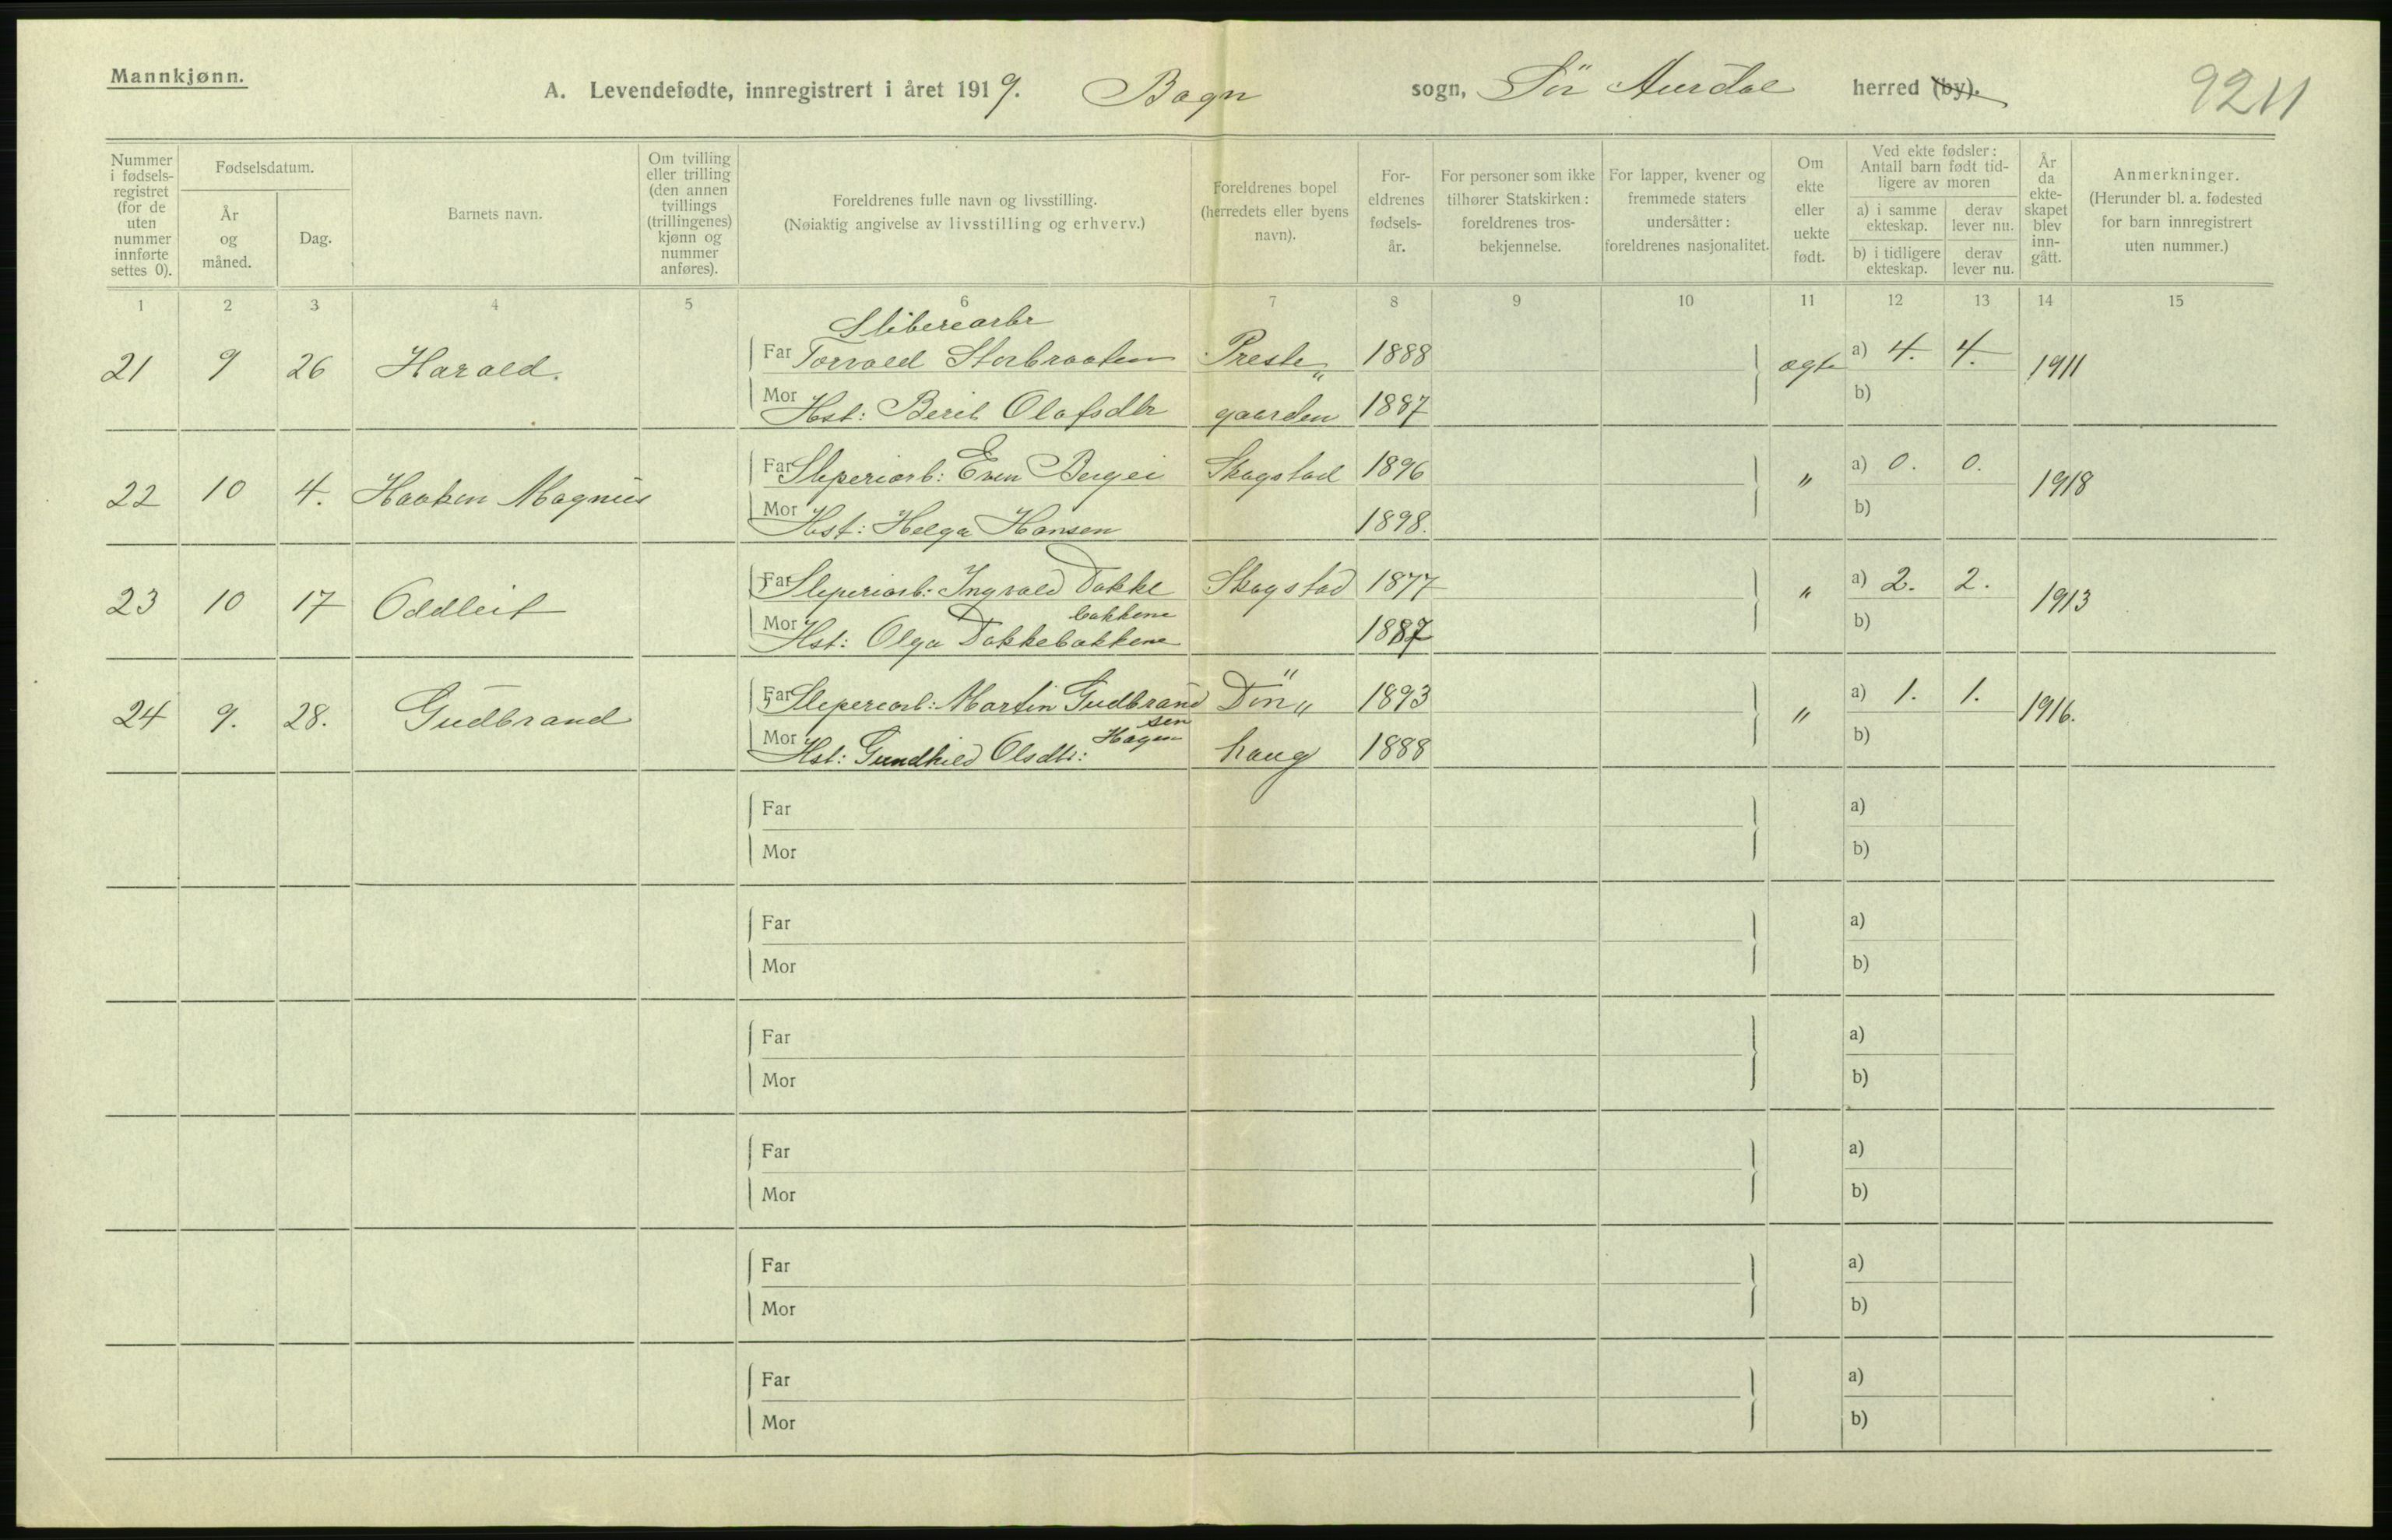 Mannkjønn.
A. Levendefødte, innregistrert i året 1919. Bagn sogn, Sör Aurdal herred (by).
9211
Nummer i fødsels-registret (for de uten nummer innførte settes 0).
Fødselsdatum.
År og måned.
Dag.
Barnets navn.
Om tvilling eller trilling (den annen tvillings (trillingenes) kjønn og nummer anføres).
Foreldrenes fulle navn og livsstilling.
(Nøiaktig angivelse av livsstilling og erhverv.)
Foreldrenes bopel (herredets eller byens navn).
For-eldrenes fødsels-år.
For personer som ikke tilhører Statskirken: foreldrenes tros-bekjennelse.
For lapper, kvener og fremmede staters undersåtter: foreldrenes nasjonalitet.
Om ekte eller uekte født.
Ved ekte fødsler: Antall barn født tid-ligere av moren
a) i samme ekteskap. derav lever nu.
b) i tidligere ekteskap. derav lever nu.
År da ekte-skapet blev inn-gått.
Anmerkninger.
(Herunder bl. a. fødested for barn innregistrert uten nummer.)
1 2 3 4 5 6 7 8 9 10 11 12 13 14 15
Sliberearbr
21 9 26 Harald. Far Torvald Storbraaten Preste„ 1888 ægte a) 4. 4. 1911
Mor Hst: Berit Olafsdtr gaarden 1887 b)
22 10 4. Haakon Magnus Far Sleperiarb: Even Bergei Skogstad 1896 " a) 0. 0. 1918
Mor Hst: Helga Hansen 1898. b)
23 10 17 Oddleif Far Sleperiarb: Ingvald Dokke Skogstad 1877 " a) 2. 2. 1913
bakkene
Mor Hst: Olga Dokkebakkene 1887 b)
24 9. 28. Gudbrand Far Sleperearb: Martin Gudbrand Dön„ 1893 " a) 1. 1. 1916.
sen
Hagen
Mor Hst: Gundhild Olsdtr: haug 1888 b)
Far a)
Mor b)
Far a)
Mor b)
Far a)
Mor b)
Far a)
Mor b)
Far a)
Mor b)
Far a)
Mor b)